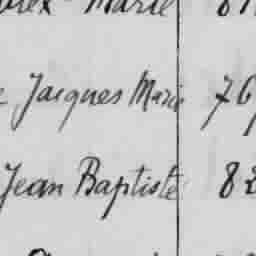 Marie
Jacques Marie 76
Jean Baptiste 82